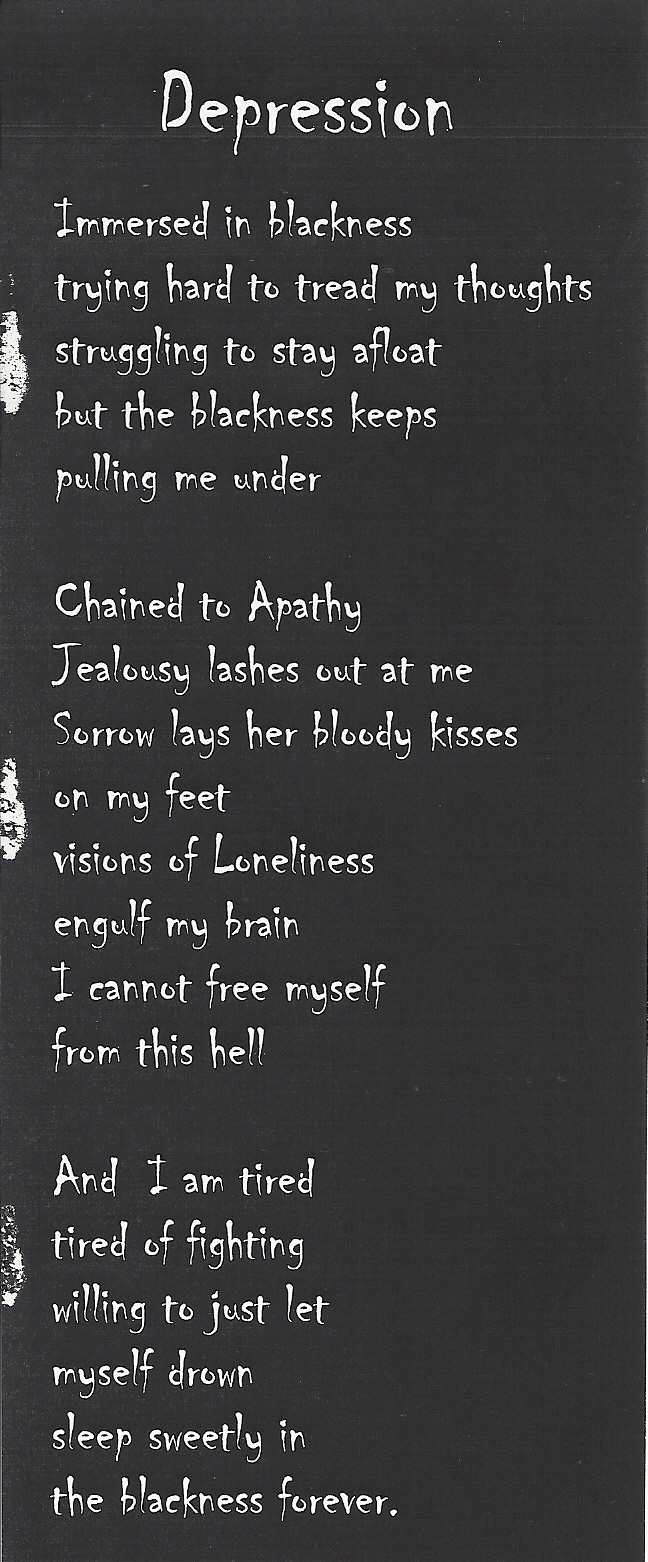 Depression
Immersed in blackness
trying hard to tread my thoughts
struggling to stay afloat
but the blackness keeps
pulling me under
Chained to Apathy
Jealousy lashes out at me
Sorrow lays her bloody kisses
on my feet
visions of Loneliness
engulf my brain
I cannot free myself
from this hell
And I am tired
tired of fighting
willing to just let
myself drown
sleep sweetly in
the blackness forever.